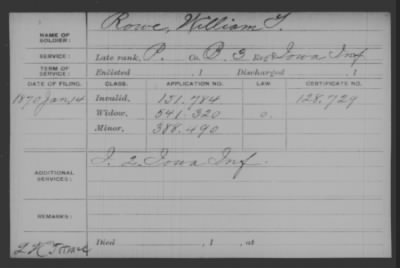 Rowe, William T.
NAME OF SOLDIER:
SERVICE: Late rank, P. Co. B. 3 Reg Iowa Inf
TERM OF SERVICE: Enlisted , 1 Discharged , 1
DATE OF FILING. CLASS. APPLICATION NO. LAW. CERTIFICATE NO.
1870 Jan. 14 Invalid, 151.784 128.729
Widow, 541.320 o.
Minor, 388.490
ADDITIONAL SERVICES: I. 2. Iowa Inf.
REMARKS:
Died , 1 , at